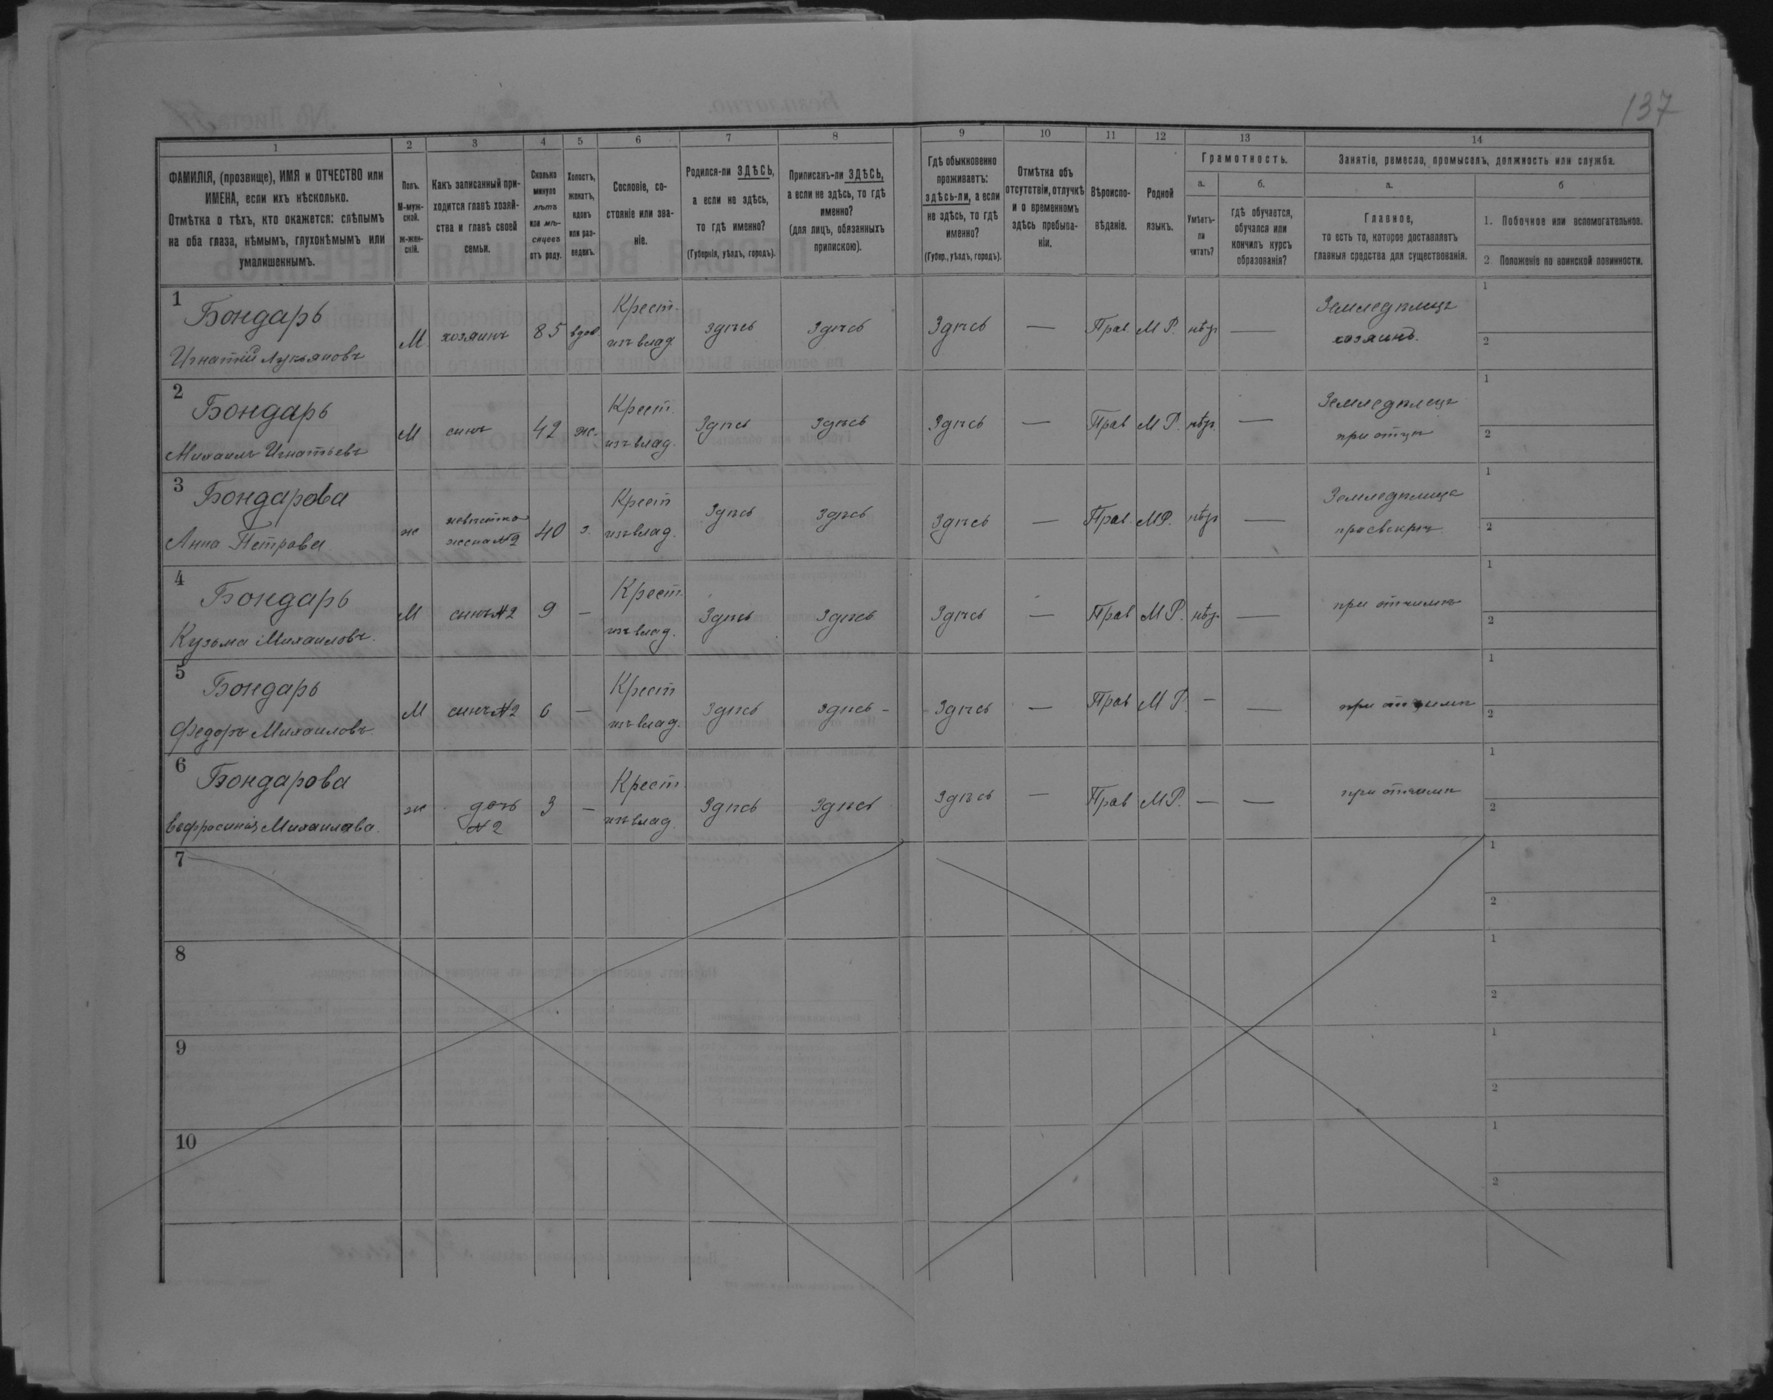 137
1
2
3
4
5
6
7
8
9
10
11
12
13
14
ФАМИЛІЯ, (прозвище), ИМЯ и ОТЧЕСТВО или
ИМЕНА, если ихъ нѣсколько.
Отмѣтка о тѣхъ, кто окажется: слѣпымъ
на оба глаза, нѣмымъ, глухонѣмымъ или
умалишеннымъ.
Полъ.
М-муж-
ской.
ж-жен-
скій.
Какъ записанный при-
ходится главѣ хозяй-
ства и главѣ своей
семьи.
Сколько
минуло
лѣтъ
или мѣ-
сяцевъ
отъ роду.
Холостъ,
женатъ,
вдовъ
или раз-
веденъ.
Сословіе, со-
стояніе или зва-
ніе.
Родился-ли ЗДѢСЬ,
а если не здѣсь,
то гдѣ именно?
(Губернія, уѣздъ, городъ).
Приписанъ-ли ЗДѢСЬ,
а если не здѣсь, то гдѣ
именно?
(для лицъ, обязанныхъ
припискою).
Гдѣ обыкновенно
проживаетъ:
здѣсь-ли, а если
не здѣсь, то гдѣ
именно?
(Губер., уѣздъ, городъ).
Отмѣтка объ
отсутствіи, отлучкѣ
и о временномъ
здѣсь пребыва-
ніи.
Вѣроиспо-
вѣданіе.
Родной
языкъ.
Грамотность.
а.
б.
Умѣетъ-
ли
читать?
гдѣ обучается,
обучался или
кончилъ курсъ
образованія?
Занятіе, ремесло, промыселъ, должность или служба.
а.
б
Главное,
то есть то, которое доставляетъ
главныя средства для существованія.
1. Побочное или вспомогательное.
2 Положеніе по воинской повинности.
1
Бондарь
Игнатій Лукьяновъ
М
хозяинъ
85
вдов
Крест.
изъ влад
Здѣсь
Здѣсь
Здѣсь
—
Прав
М Р.
нѣт
—
Земледѣлецъ
хозяинъ.
1
2
2
Бондарь
Михаилъ Игнатьевъ
М
сынъ
42
ж.
Крест.
изъ влад.
Здѣсь
Здѣсь
Здѣсь
—
Прав
М Р.
нѣт.
—
Земледѣлецъ
при отцѣ
1
2
3
Бондарова
Анна Петрова
ж
невѣстка
жена №2
40
з.
Крест
изъ влад.
Здѣсь
Здѣсь
Здѣсь
—
Прав.
МР.
нѣт
—
Земледѣлица
при свекрѣ
1
2
4
Бондарь
Кузьма Михаиловъ.
М
сынъ №2
9
—
Крест.
изъ влад.
Здѣсь
Здѣсь
Здѣсь
—
Прав
М Р.
нѣт.
—
1
2
5
Бондарь
Федоръ Михаиловъ
М
сынъ №2
6
—
Крест
изъ влад.
Здѣсь
Здѣсь -
Здѣсь
—
Прав
М Р.
—
—
1
2
6
Бондарова
Михаилова.
ж
дочь
№2
3
—
Крест
изъ влад.
Здѣсь
Здѣсь
Здѣсь
—
Прав
МР.
—
—
1
2
7
1
2
8
1
2
9
1
2
10
1
2